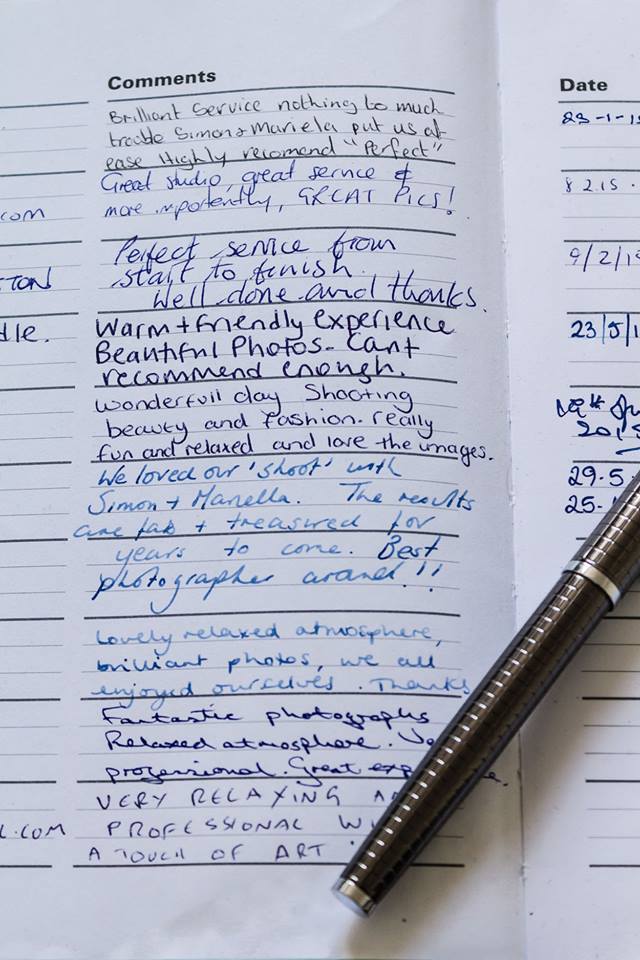 Comments
Brilliant Service nothing to much
trouble Simon + Mariela put us at
ease Highly recomend "Perfect"
Great studio, great service &
more importently, GREAT PICS!
Perfect service from
start to finish.
Well done and thanks.
Warm + friendly experience
Beautiful Photos - Can't
recommend enough.
Wonderfull day Shooting
beauty and Fashion. really
fun and relaxed and love the images.
We loved our 'shoot' with
Simon + Mariella. The results
are fab + treasured for
years to come. Best
photographer around!!
Lovely relaxed atmosphere,
brilliant photos, we all
enjoyed ourselves. Thanks
Fantastic photographs
Relaxed atmosphere.
professional. Great
VERY RELAXING
PROFESSIONAL
A TOUCH OF ART
.com
TON
dle.
L.COM
Date
23-1-1
8 2.15.
9/2/1
23/5/1
201
29.5.
25.